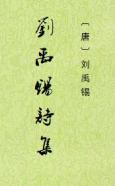 劉禹錫詩集
〔唐〕刘禹锡